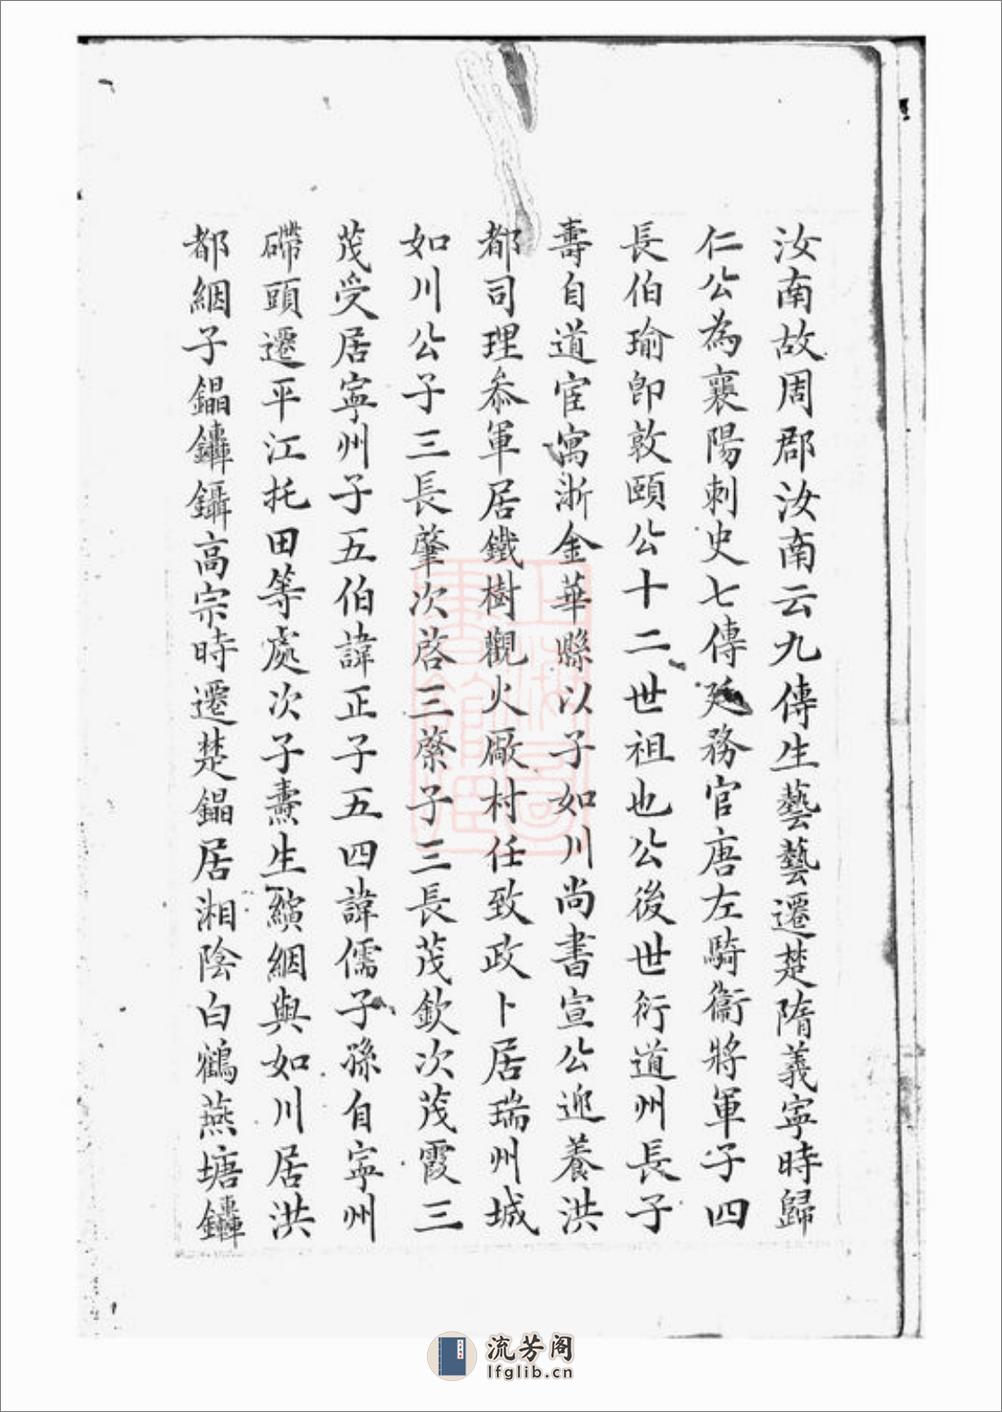 汝南故周郡汝南云九傳生藝藝遷楚隋義寧時歸
仁公為襄陽刺史七傳廷務官唐左騎衞將軍子四
長伯瑜即敦頤公十二世祖也公後世衍道州長子
壽自道宦寓浙金華縣以子如川尚書宣公迎養洪
都司理叅軍居鐵樹觀火厰村任致政卜居瑞州城
如川公子三長肇次啓三綮子三長茂欽次茂霞三
茂受居寧州子五伯諱正子五四諱儒子孫自寧州
磜頭遷平江托田等處次子燾生縯絪與如川居洪
都絪子鑷高宗時遷楚居湘陰白鶴燕塘
流芳阁
lfglib.cn